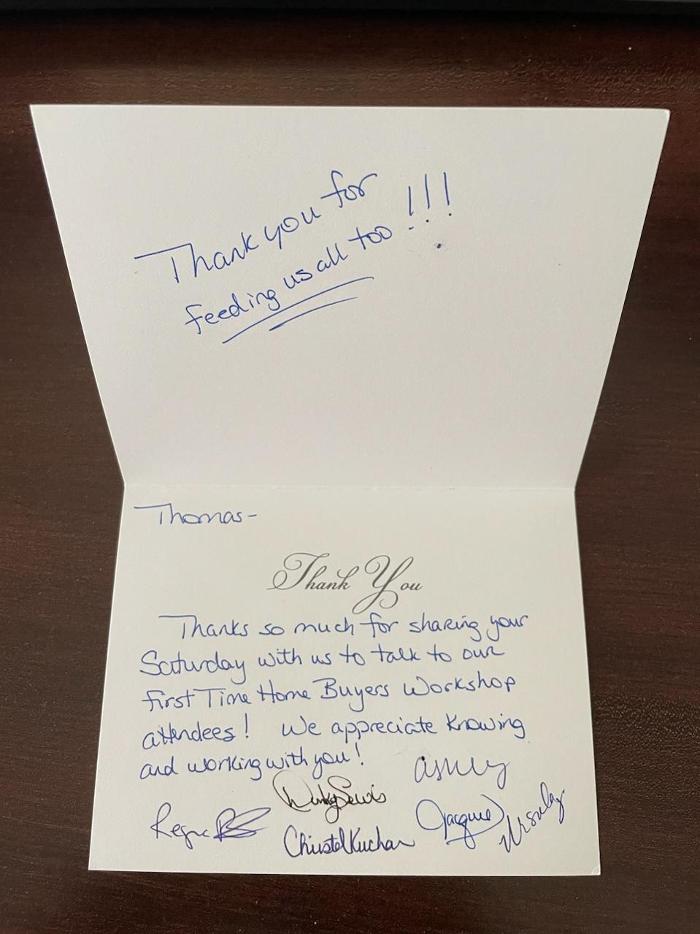 Thank you for
feeding us all too !!!
Thomas-
Thank You
Thanks so much for sharing your
Saturday with us to talk to our
First Time Home Buyers Workshop
attendees! We appreciate knowing
and working with you!
Ashley
Christel Kuchar
Jacquie
Ursula